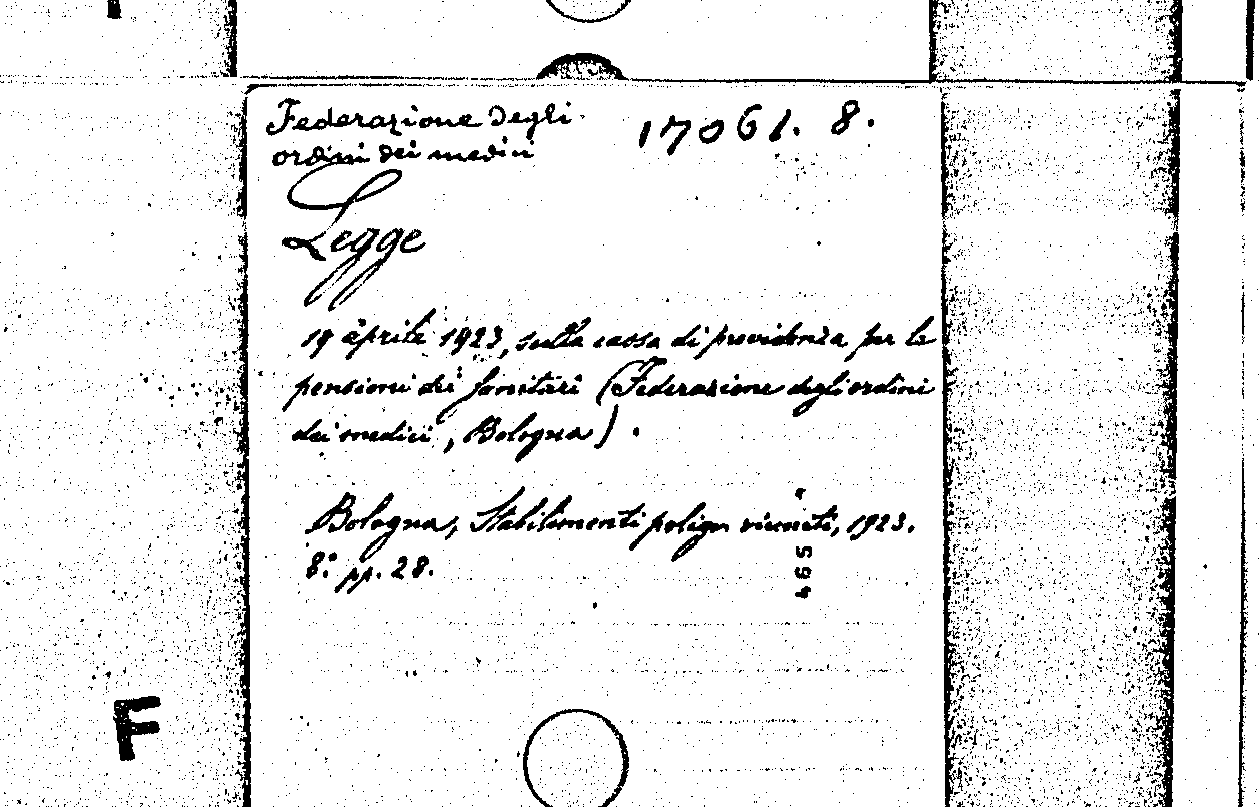 Federazione degli
ordini dei medici
17061. 8.
Legge
19 aprile 1923, sulla cassa di previdenza per le
pensioni dei sanitari (Federazione degli ordini
dei medici, Bologna).
Bologna, Stabilimenti poligr riuniti, 1923.
8.° pp. 28.
465
F